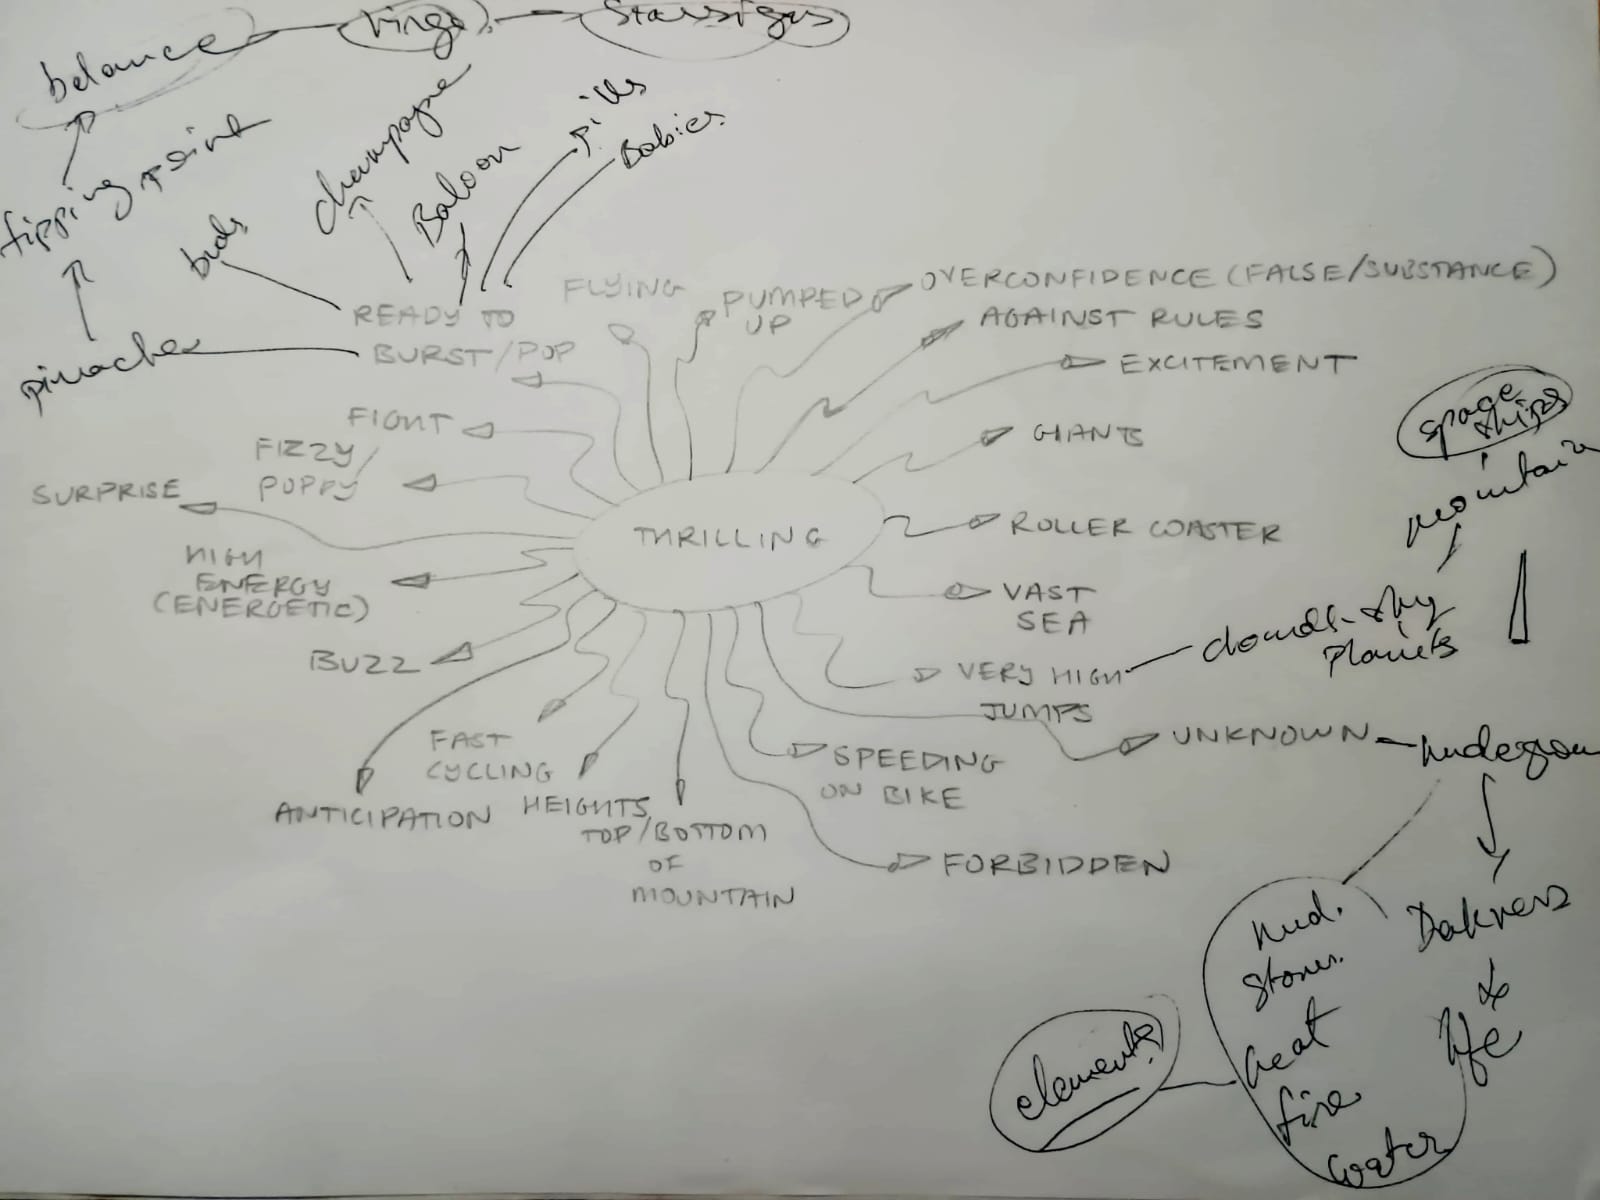 belance
Virgo
Starsigns
tipping point
buds
champagne
Baloon
pills
Babies
pinacle
READY TO
BURST/POP
FLYING
PUMPED
UP
OVERCONFIDENCE (FALSE/SUBSTANCE)
AGAINST RULES
EXCITEMENT
GIANTS
FIGHT
FIZZY/
POPPY
SURPRISE
HIGH
ENERGY
(ENERGETIC)
BUZZ
THRILLING
ROLLER COASTER
VAST
SEA
VERY HIGH
JUMPS
clouds - sky
Planets
mountain
space
ships
UNKNOWN
FAST
CYCLING
ANTICIPATION
HEIGHTS
TOP/BOTTOM
OF
MOUNTAIN
SPEEDING
ON BIKE
FORBIDDEN
Dakness
&
life
mud.
stones.
heat
fire
water
elements